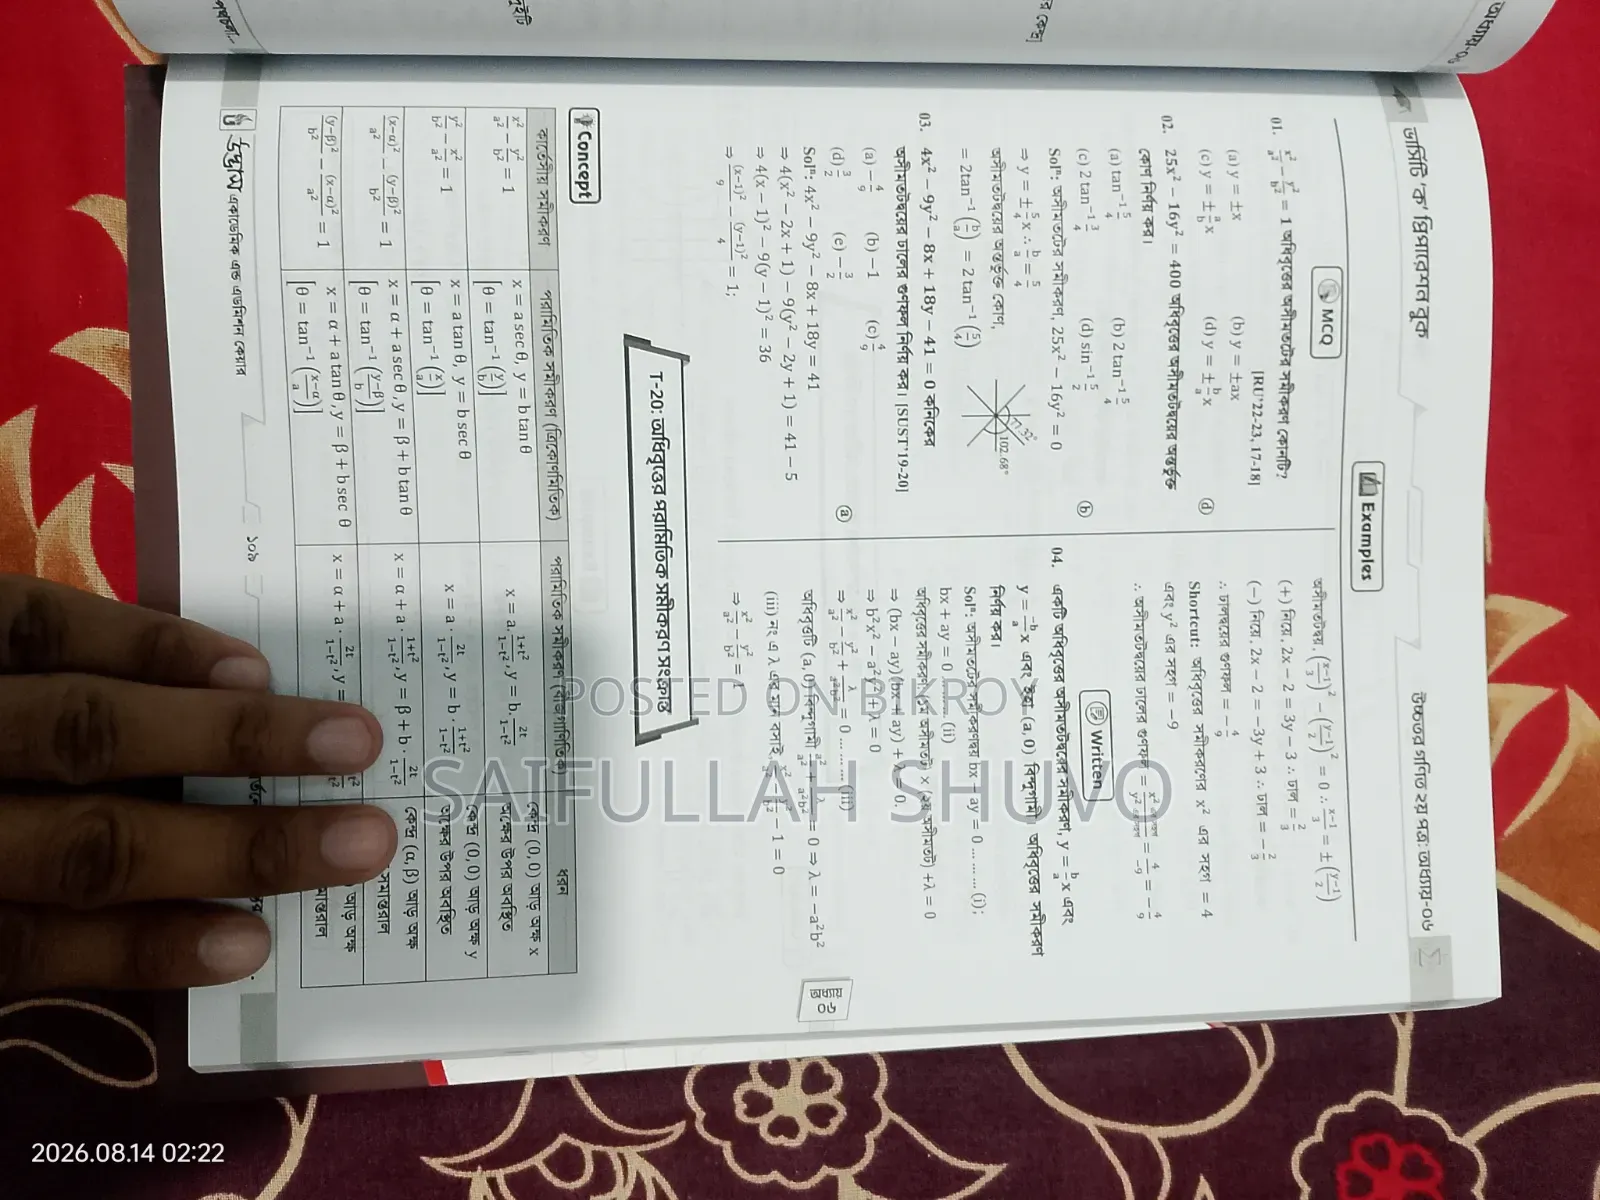 ভার্সিটি 'ক' প্রিপারেশন বুক
উচ্চতর গণিত ২য় পত্র: অধ্যায়-০৬
Examples
MCQ
01. x²/a² − y²/b² = 1 অধিবৃত্তের অসীমতটের সমীকরণ কোনটি?
[RU'22-23, 17-18]
(a) y = ±x (b) y = ±ax
(c) y = ± a/b x (d) y = ± b/a x ⓓ
02. 25x² − 16y² = 400 অধিবৃত্তের অসীমতটদ্বয়ের অন্তর্ভুক্ত
কোণ নির্ণয় কর।
(a) tan⁻¹ 5/4 (b) 2 tan⁻¹ 5/4
(c) 2 tan⁻¹ 3/4 (d) sin⁻¹ 5/2 ⓑ
Solⁿ: অসীমতটের সমীকরণ, 25x² − 16y² = 0
⇒ y = ± 5/4 x ∴ b/a = 5/4
অসীমতটদ্বয়ের অন্তর্ভুক্ত কোণ,
= 2tan⁻¹ (b/a) = 2 tan⁻¹ (5/4)
77.32°
102.68°
03. 4x² − 9y² − 8x + 18y − 41 = 0 কনিকের
অসীমতটদ্বয়ের ঢালের গুণফল নির্ণয় কর। [SUST'19-20]
(a) − 4/9 (b) −1 (c) 4/9
(d) 3/2 (e) − 3/2 ⓐ
Solⁿ: 4x² − 9y² − 8x + 18y = 41
⇒ 4(x² − 2x + 1) − 9(y² − 2y + 1) = 41 − 5
⇒ 4(x − 1)² − 9(y − 1)² = 36
⇒ (x−1)²/9 − (y−1)²/4 = 1;
অসীমতটদ্বয়, ((x−1)/3)² − ((y−1)/2)² = 0 ∴ (x−1)/3 = ± ((y−1)/2)
(+) নিয়ে, 2x − 2 = 3y − 3 ∴ ঢাল = 2/3
(−) নিয়ে, 2x − 2 = −3y + 3 ∴ ঢাল = − 2/3
∴ ঢালদ্বয়ের গুণফল = − 4/9
Shortcut: অধিবৃত্তের সমীকরণের x² এর সহগ = 4
এবং y² এর সহগ = −9
∴ অসীমতটদ্বয়ের ঢালের গুণফল = x² এর সহগ/y² এর সহগ = 4/−9 = − 4/9
Written
04. একটি অধিবৃত্তের অসীমতটদ্বয়ের সমীকরণ, y = b/a x এবং
y = −b/a x এবং ইহা (a, 0) বিন্দুগামী। অধিবৃত্তের সমীকরণ
নির্ণয় কর।
Solⁿ: অসীমতটের সমীকরণদ্বয় bx − ay = 0 ... ... (i);
bx + ay = 0 ... ... (ii)
অধিবৃত্তের সমীকরণ (১ম অসীমতট) × (২য় অসীমতট) + λ = 0
⇒ (bx − ay) (bx + ay) + λ = 0.
⇒ b²x² − a²y² + λ = 0
⇒ x²/a² − y²/b² + λ/a²b² = 0 ... ... ... (iii)
অধিবৃত্তটি (a, 0) বিন্দুগামী a²/a² + λ/a²b² = 0 ⇒ λ = −a²b²
(iii) নং এ λ এর মান বসাই, x²/a² − y²/b² − 1 = 0
⇒ x²/a² − y²/b² = 1
অধ্যায়
০৬
T-20: অধিবৃত্তের পরামিতিক সমীকরণ সংক্রান্ত
Concept
কার্তেসীয় সমীকরণ পরামিতিক সমীকরণ (ত্রিকোণমিতিক) পরামিতিক সমীকরণ (বীজগাণিতিক) ধরন
x²/a² − y²/b² = 1 x = a sec θ, y = b tan θ [θ = tan⁻¹ (y/b)] x = a. (1+t²)/(1−t²), y = b. 2t/(1−t²) কেন্দ্র (0, 0) আড় অক্ষ x অক্ষের উপর অবস্থিত
y²/b² − x²/a² = 1 x = a tan θ, y = b sec θ [θ = tan⁻¹ (x/a)] x = a. 2t/(1−t²), y = b. (1+t²)/(1−t²) কেন্দ্র (0, 0) আড় অক্ষ y অক্ষের উপর অবস্থিত
(x−α)²/a² − (y−β)²/b² = 1 x = α + a sec θ, y = β + b tan θ [θ = tan⁻¹ ((y−β)/b)] x = α + a. (1+t²)/(1−t²), y = β + b. 2t/(1−t²) কেন্দ্র (α, β) আড় অক্ষ সমান্তরাল
(y−β)²/b² − (x−α)²/a² = 1 x = α + a tan θ, y = β + b sec θ [θ = tan⁻¹ ((x−α)/a)] x = α + a. 2t/(1−t²), y = আড় অক্ষ মান্তরাল
উদ্ভাস একাডেমিক এন্ড এডমিশন কেয়ার
১০৯
POSTED ON BIKROY
SAIFULLAH SHUVO
2026.08.14 02:22